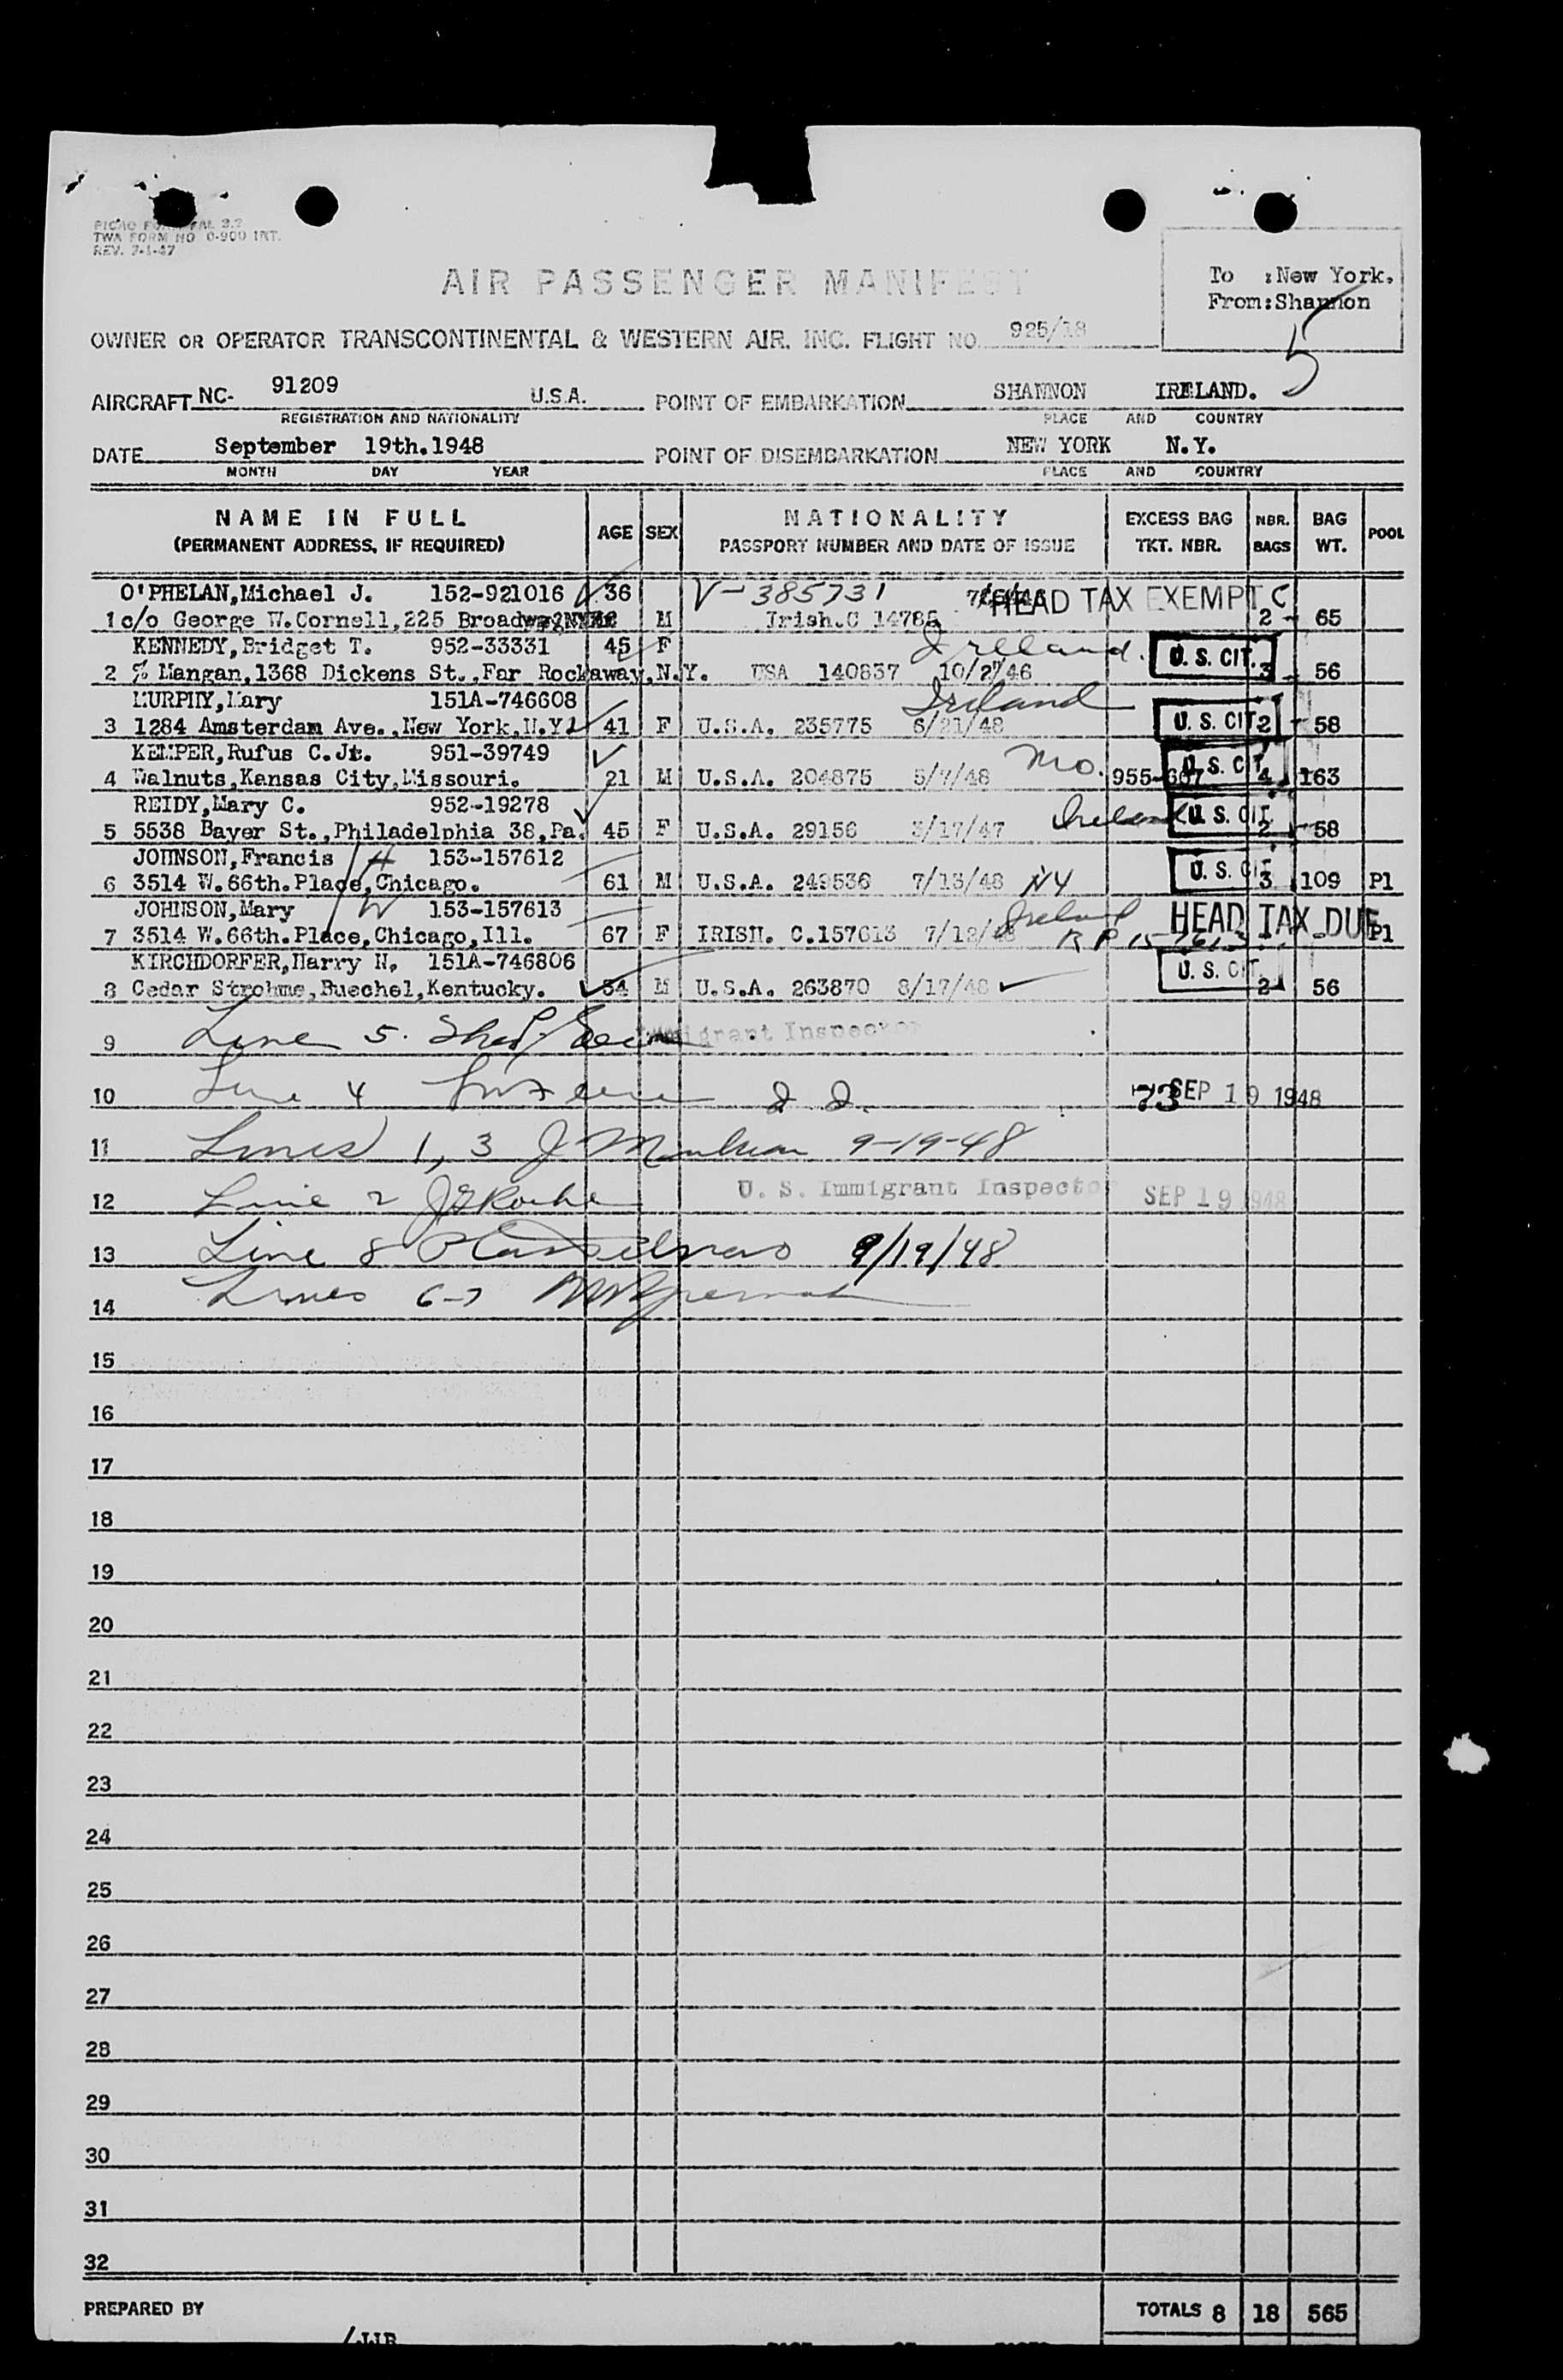 TWA FORM NO 0-900 INT.
REV. 7-1-47
AIR PASSENGER MANIFEST
To :New York.
From:Shannon
5
OWNER OR OPERATOR TRANSCONTINENTAL & WESTERN AIR. INC. FLIGHT NO. 925/18
AIRCRAFT NC- 91209 U.S.A. POINT OF EMBARKATION SHANNON IRELAND.
REGISTRATION AND NATIONALITY PLACE AND COUNTRY
DATE September 19th.1948 POINT OF DISEMBARKATION NEW YORK N.Y.
MONTH DAY YEAR PLACE AND COUNTRY
NAME IN FULL AGE SEX NATIONALITY EXCESS BAG NBR. BAG POOL
(PERMANENT ADDRESS, IF REQUIRED) PASSPORT NUMBER AND DATE OF ISSUE TKT. NBR. BAGS WT.
O'PHELAN,Michael J. 152-921016 36 V-385731 HEAD TAX EXEMPT C
1 c/o George W.Cornell,225 Broadway M Irish.C 14785 2 65
KENNEDY,Bridget T. 952-33331 45 F Ireland. U. S. CIT.
2 % Mangan,1368 Dickens St.,Far Rockaway,N.Y. USA 140837 10/2/46 3 56
MURPHY,Mary 151A-746608 Ireland
3 1284 Amsterdam Ave.,New York,N.Y. 41 F U.S.A. 235775 6/21/48 U. S. CIT. 2 58
KEMPER,Rufus C.Jr. 951-39749 Mo. U. S. CIT.
4 Walnuts,Kansas City,Missouri. 21 M U.S.A. 204875 5/7/48 955-667 4 163
REIDY,Mary C. 952-19278 Ireland U. S. CIT.
5 5538 Bayer St.,Philadelphia 38,Pa. 45 F U.S.A. 29156 3/17/47 2 58
JOHNSON,Francis H 153-157612 U. S. CIT.
6 3514 W.66th.Place,Chicago. 61 M U.S.A. 249536 7/13/48 NY 3 109 P1
JOHNSON,Mary W 153-157613 Ireland HEAD TAX DUE
7 3514 W.66th.Place,Chicago,Ill. 67 F IRISH. C.157613 7/12/48 R P 157613 P1
KIRCHDORFER,Harry H. 151A-746806 U. S. CIT.
8 Cedar Strohme,Buechel,Kentucky. 54 M U.S.A. 263870 8/17/48 2 56
9 Line 5. Immigrant Inspector
10 Line 4 73 SEP 19 1948
11 Lines 1, 3 J 9-19-48
12 Line 2 J G Roche U. S. Immigrant Inspector SEP 19 1948
13 Line 8 9/19/48
14 Lines 6-7
15
16
17
18
19
20
21
22
23
24
25
26
27
28
29
30
31
32
PREPARED BY TOTALS 8 18 565